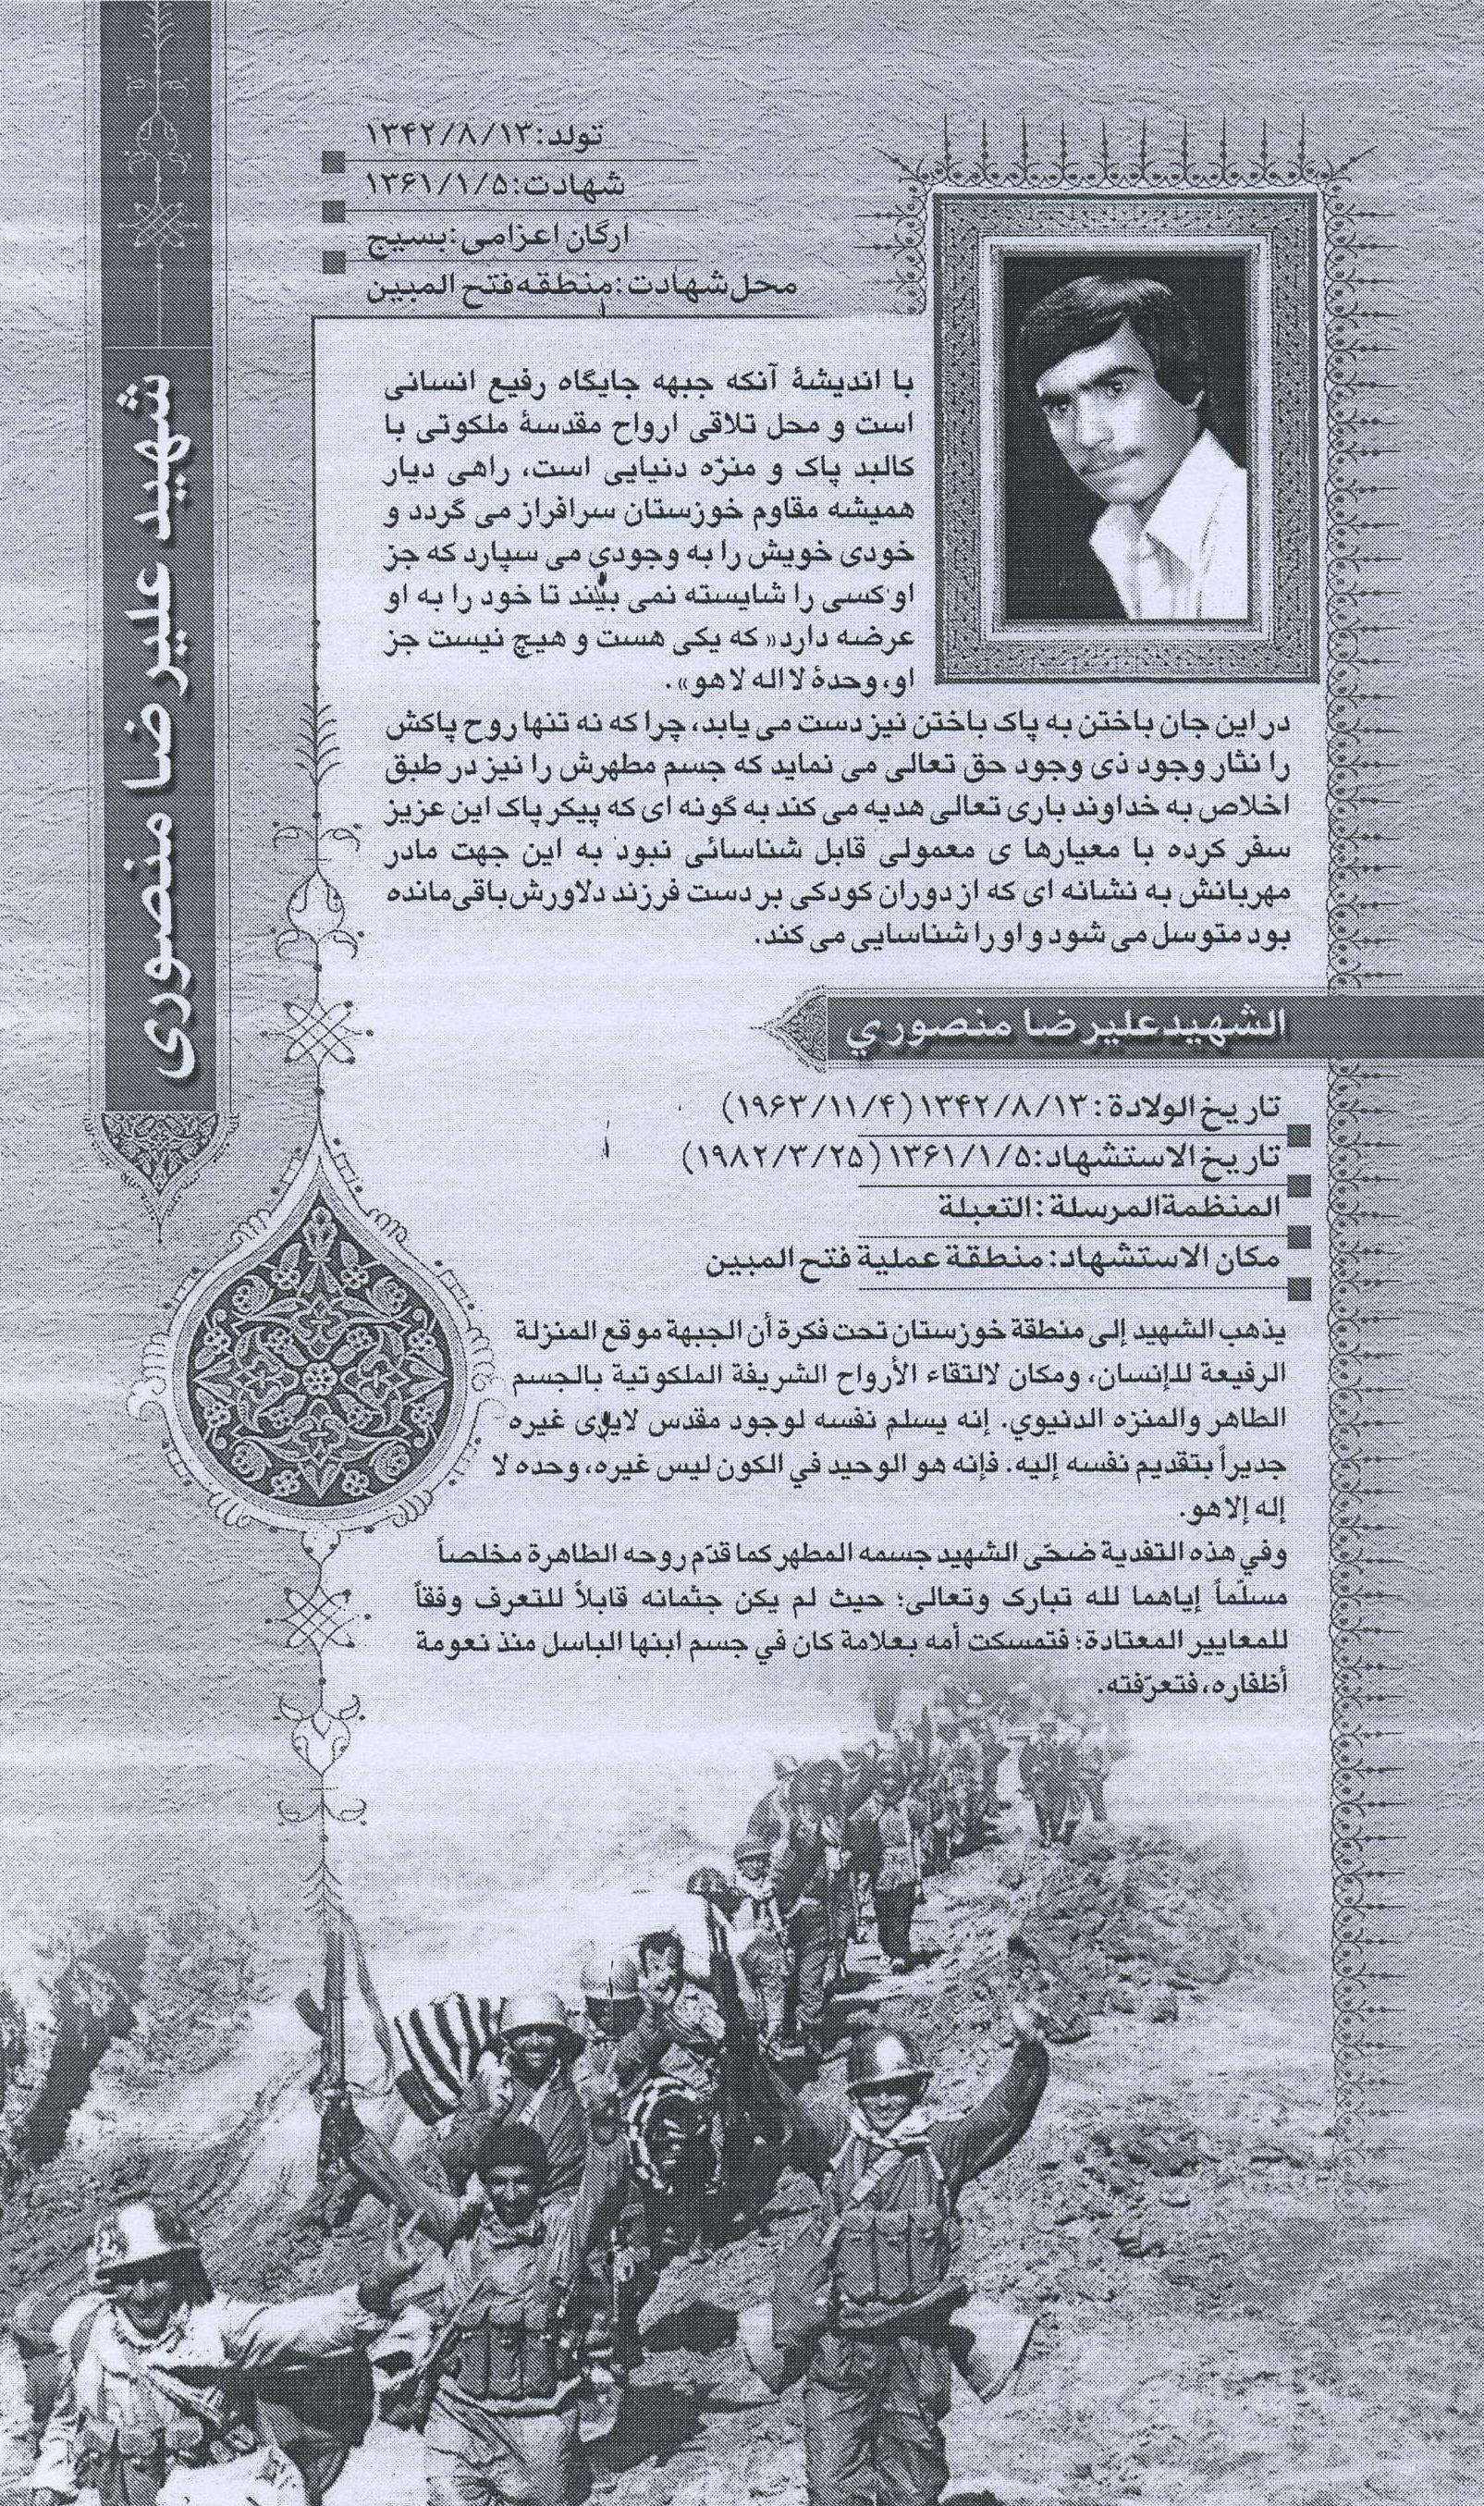 شهید علیرضا منصوری
تولد:۱۳۴۲/۸/۱۳
شهادت:۱۳۶۱/۱/۵
ارگان اعزامی:بسیج
محل شهادت:منطقه فتح المبین
با اندیشهٔ آنکه جبهه جایگاه رفیع انسانی
است و محل تلاقی ارواح مقدسهٔ ملکوتی با
کالبد پاک و منزّه دنیایی است، راهی دیار
همیشه مقاوم خوزستان سرافراز می گردد و
خودی خویش را به وجودی می سپارد که جز
او کسی را شایسته نمی بیند تا خود را به او
عرضه دارد« که یکی هست و هیچ نیست جز
او، وحدهٔ لا اله لا هو».
در این جان باختن به پاک باختن نیز دست می یابد، چرا که نه تنها روح پاکش
را نثار وجود ذی وجود حق تعالی می نماید که جسم مطهرش را نیز در طبق
اخلاص به خداوند باری تعالی هدیه می کند به گونه ای که پیکر پاک این عزیز
سفر کرده با معیارها ی معمولی قابل شناسائی نبود به این جهت مادر
مهربانش به نشانه ای که از دوران کودکی بر دست فرزند دلاورش باقی مانده
بود متوسل می شود و او را شناسایی می کند.
الشهید علیرضا منصوري
تاریخ الولادة: ۱۳۴۲/۸/۱۳ (۱۹۶۳/۱۱/۴)
تاریخ الاستشهاد:۱۳۶۱/۱/۵ (۱۹۸۲/۳/۲۵)
المنظمة المرسلة: التعبلة
مکان الاستشهاد: منطقة عملیة فتح المبین
یذهب الشهید إلی منطقة خوزستان تحت فکرة أن الجبهة موقع المنزلة
الرفیعة للإنسان، ومکان لالتقاء الأرواح الشریفة الملکوتیة بالجسم
الطاهر والمنزه الدنیوي. إنه یسلم نفسه لوجود مقدس لایری غیره
جدیراً بتقدیم نفسه إلیه. فإنه هو الوحید في الکون لیس غیره، وحده لا
إله إلا هو.
وفي هذه التفدیة ضحّی الشهید جسمه المطهر کما قدّم روحه الطاهرة مخلصاً
مسلّماً إیاهما لله تبارک وتعالی؛ حیث لم یکن جثمانه قابلاً للتعرف وفقاً
للمعاییر المعتادة؛ فتمسکت أمه بعلامة کان في جسم ابنها الباسل منذ نعومة
أظفاره، فتعرّفته.